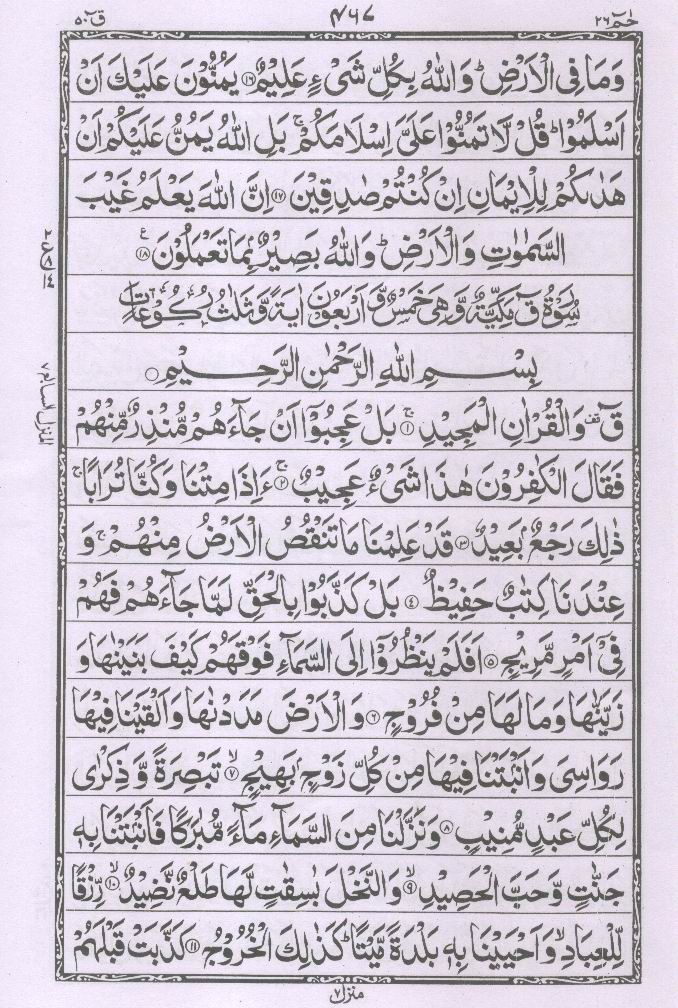 حٰمٓ ٢٦ ٤٦٧ قٓ ٥٠
وَمَا فِى الْاَرْضِ ؕ وَاللّٰهُ بِكُلِّ شَىْءٍ عَلِيْمٌ ﴿۱۶﴾ يَمُنُّوْنَ عَلَيْكَ اَنْ
اَسْلَمُوْا ؕ قُلْ لَّا تَمُنُّوْا عَلَىَّ اِسْلَامَكُمْ ۚ بَلِ اللّٰهُ يَمُنُّ عَلَيْكُمْ اَنْ
هَدٰىكُمْ لِلْاِيْمَانِ اِنْ كُنْتُمْ صٰدِقِيْنَ ﴿۱۷﴾ اِنَّ اللّٰهَ يَعْلَمُ غَيْبَ
السَّمٰوٰتِ وَالْاَرْضِ ؕ وَاللّٰهُ بَصِيْرٌۢ بِمَا تَعْمَلُوْنَ ﴿۱۸﴾ ع
سُوْرَةُ قٓ مَكِّيَّةٌ وَّهِىَ خَمْسٌ وَّ اَرْبَعُوْنَ اٰيَةً وَّثَلٰثُ رُكُوْعَاتٍ
بِسْمِ اللّٰهِ الرَّحْمٰنِ الرَّحِيْمِ
قٓ ۚ وَالْقُرْاٰنِ الْمَجِيْدِ ﴿۱﴾ۚ بَلْ عَجِبُوْٓا اَنْ جَآءَهُمْ مُّنْذِرٌ مِّنْهُمْ
فَقَالَ الْكٰفِرُوْنَ هٰذَا شَىْءٌ عَجِيْبٌ ﴿۲﴾ۚ ءَاِذَا مِتْنَا وَكُنَّا تُرَابًا ۚ
ذٰلِكَ رَجْعٌۢ بَعِيْدٌ ﴿۳﴾ قَدْ عَلِمْنَا مَا تَنْقُصُ الْاَرْضُ مِنْهُمْ ۚ وَ
عِنْدَنَا كِتٰبٌ حَفِيْظٌ ﴿۴﴾ بَلْ كَذَّبُوْا بِالْحَقِّ لَمَّا جَآءَهُمْ فَهُمْ
فِىْٓ اَمْرٍ مَّرِيْجٍ ﴿۵﴾ اَفَلَمْ يَنْظُرُوْٓا اِلَى السَّمَآءِ فَوْقَهُمْ كَيْفَ بَنَيْنٰهَا وَ
زَيَّنّٰهَا وَمَا لَهَا مِنْ فُرُوْجٍ ﴿۶﴾ وَالْاَرْضَ مَدَدْنٰهَا وَاَلْقَيْنَا فِيْهَا
رَوَاسِىَ وَاَنْۢبَتْنَا فِيْهَا مِنْ كُلِّ زَوْجٍۭ بَهِيْجٍ ﴿۷﴾ۙ تَبْصِرَةً وَّ ذِكْرٰى
لِكُلِّ عَبْدٍ مُّنِيْبٍ ﴿۸﴾ وَنَزَّلْنَا مِنَ السَّمَآءِ مَآءً مُّبٰرَكًا فَاَنْۢبَتْنَا بِهٖ
جَنّٰتٍ وَّحَبَّ الْحَصِيْدِ ﴿۹﴾ۙ وَالنَّخْلَ بٰسِقٰتٍ لَّهَا طَلْعٌ نَّضِيْدٌ ﴿۱۰﴾ۙ رِّزْقًا
لِّلْعِبَادِ ۙ وَاَحْيَيْنَا بِهٖ بَلْدَةً مَّيْتًا ؕ كَذٰلِكَ الْخُرُوْجُ ﴿۱۱﴾ كَذَّبَتْ قَبْلَهُمْ
المنزل السابع ٧
منزل ٧